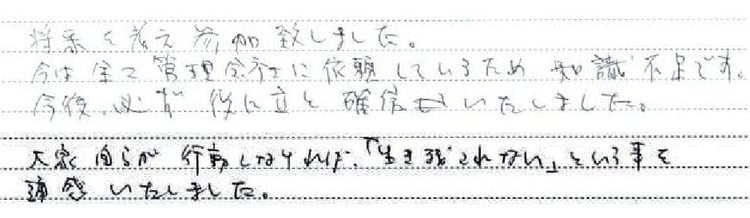 将来を考え参加致しました。
今は全て管理会社に依頼しているため知識不足です。
今後、必ず役に立と確信をいたしました。
大家自らが行動しなければ、「生き残これない」という事を
痛感いたしました。